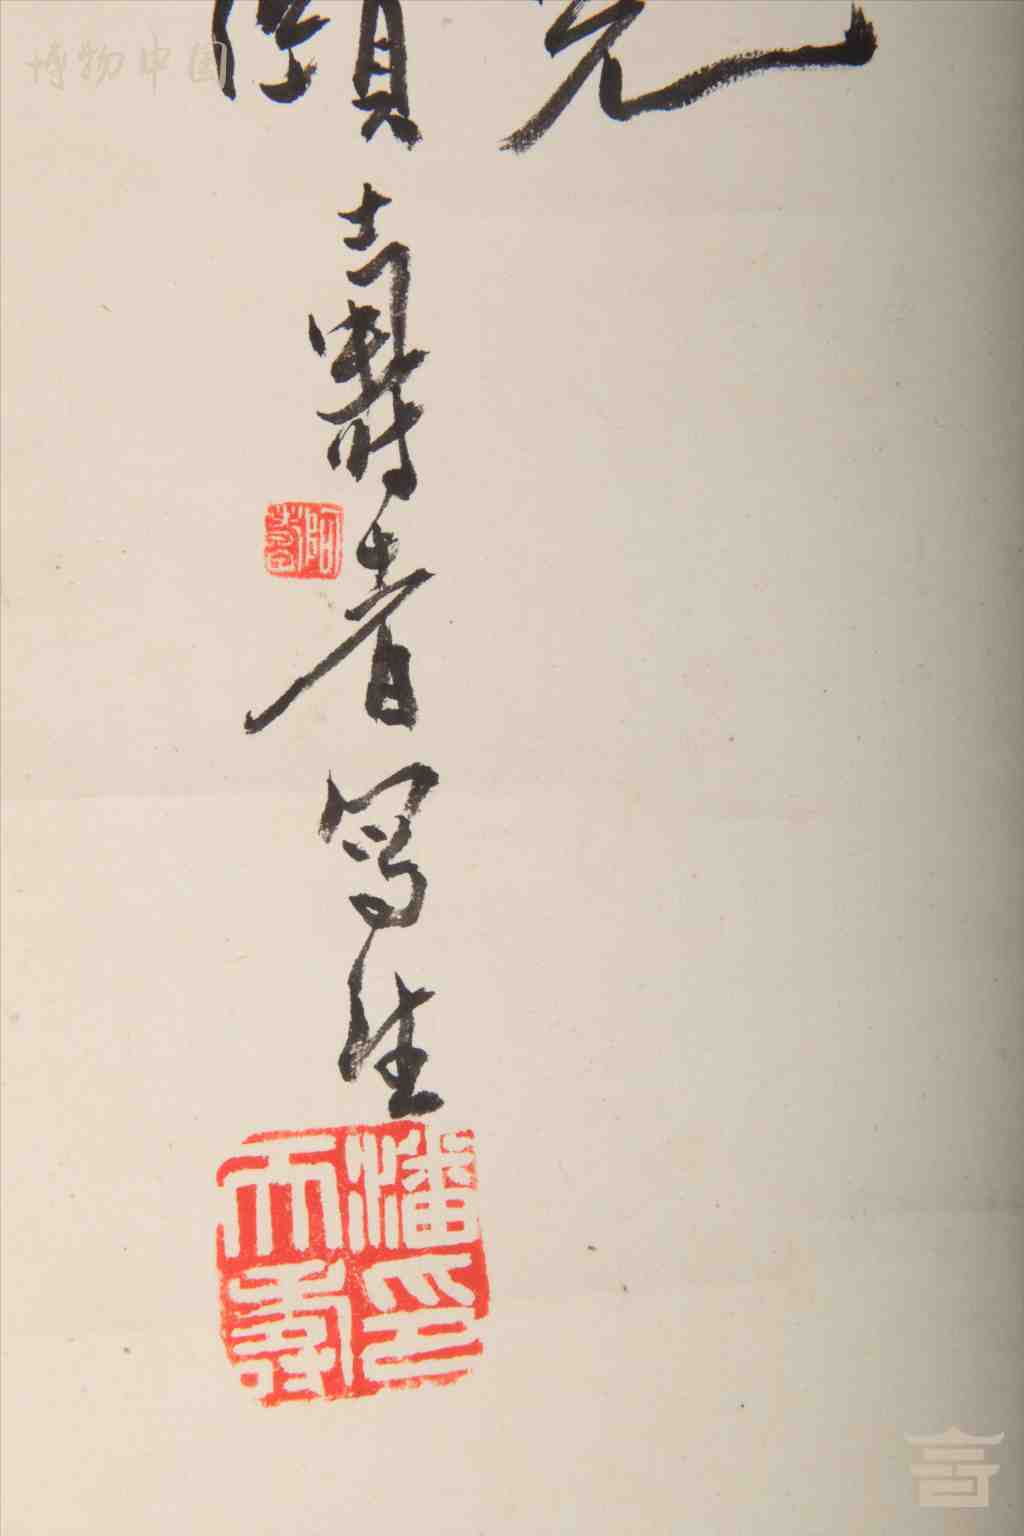 博物中国
壽者寫生
阿壽
潘印天壽